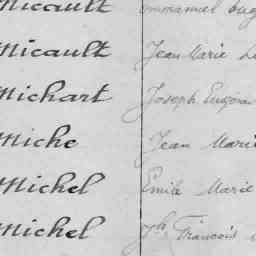 Micault Emmanuel Eug
Micault Jean Marie
Michart Joseph Eugène
Miche Jean Marie
Michel Emile Marie
Michel Jh François